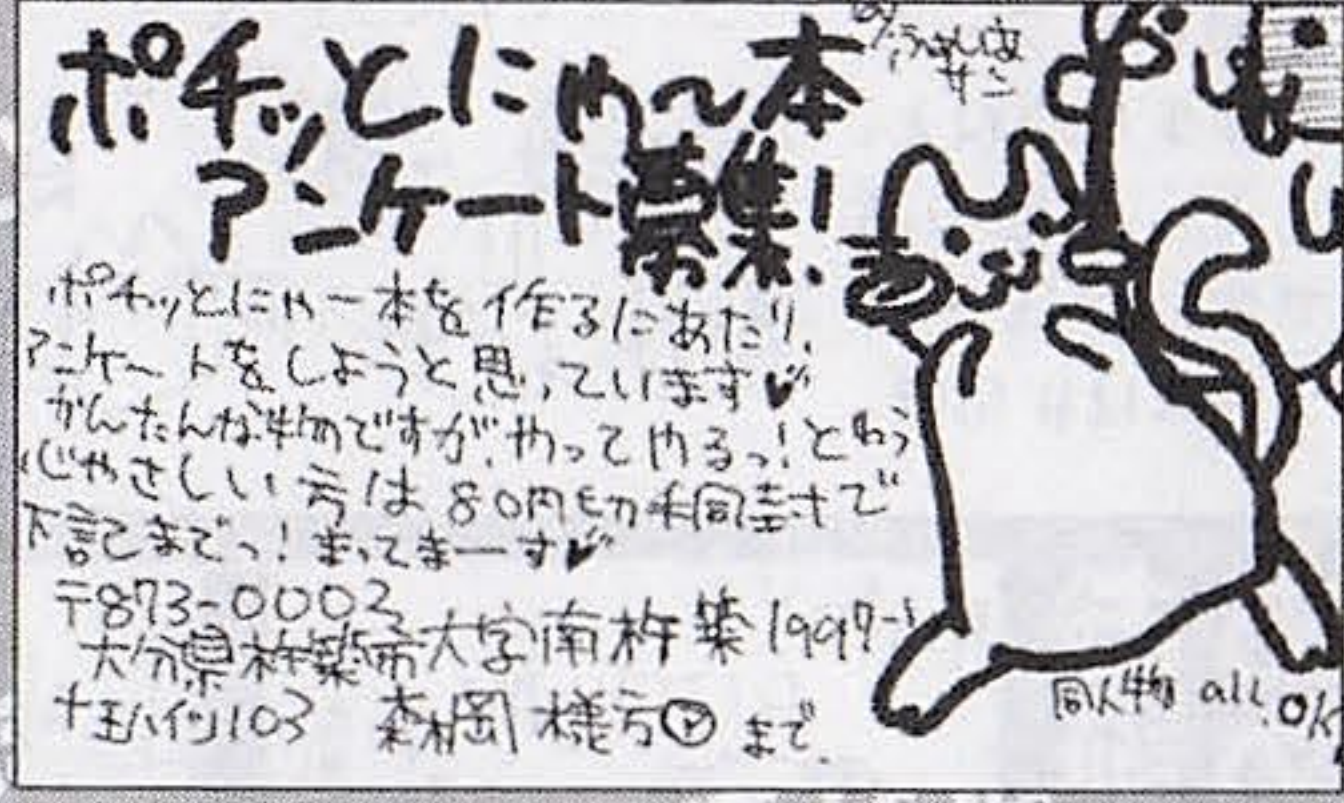 ポチッとにゃ〜本
アンケート募集!
ポチッとにゃー本を作るにあたり、
アンケートをしようと思っています♥
かんたんな物ですが、やってやるっ!とゆう
心やさしい方は80円切手同封で
下記までっ!まってまーす♥
〒873-0002
大分県杵築市大字南杵築1997-1
ナエハイツ103 森岡様方Ⓟまで.
同人物 all.OK